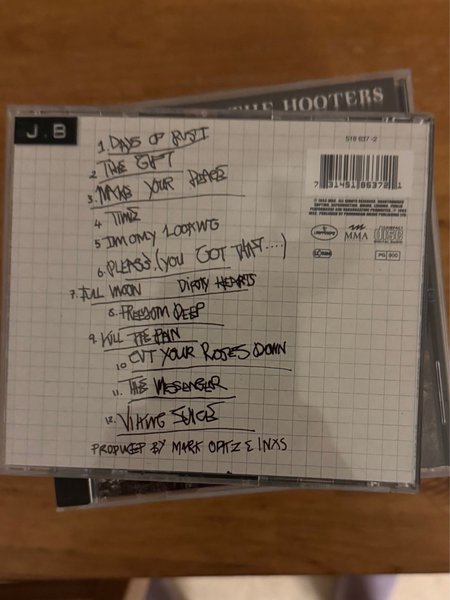 THE HOOTERS
J.B
518 637-2
1. DAYS OF RUST
2 THE GIFT
3. MAKE YOUR PEACE
4 TIME
5 IM ONLY LOOKING
6. PLEASE (YOU GOT THAT....)
7. FULL MOON DIRTY HEARTS
8. FREEDOM DEEP
9. KILL THE PAIN
10. CUT YOUR ROSES DOWN
11. THE MESSENGER
12. VIKING JUICE
PRODUCED BY MARK OPITZ & INXS
7 31451 86372 1
ALL RIGHTS RESERVED.
MMA
PG 900